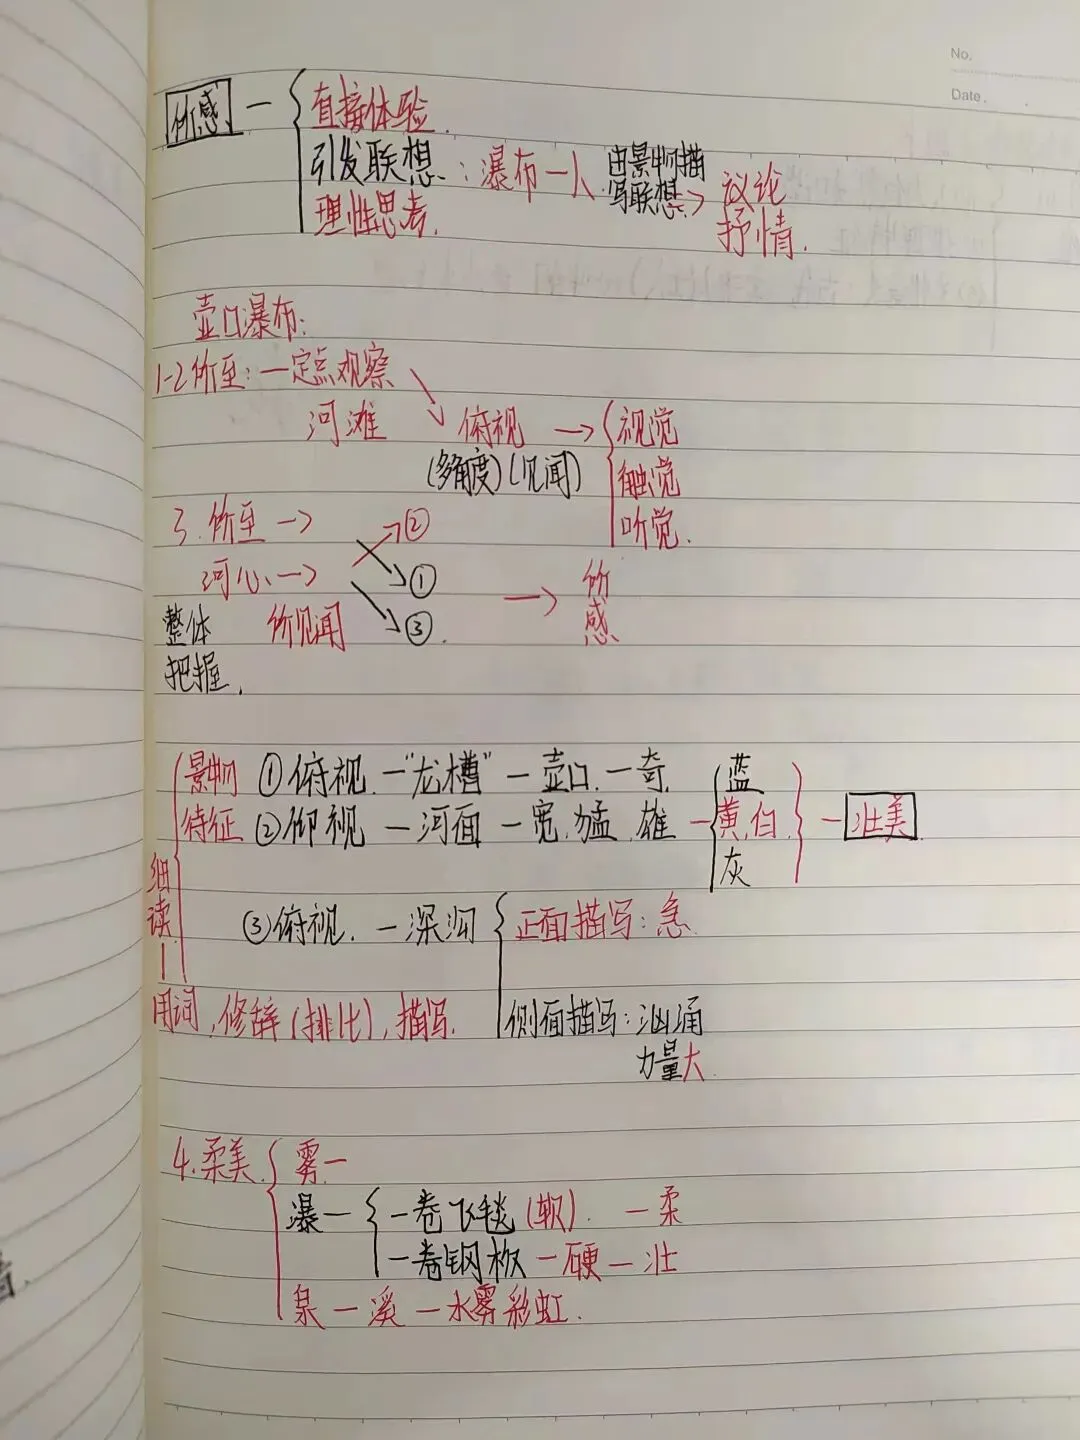 No.
Date.
所感 — 直接体验.
引发联想：瀑布—人 由景物描写联想→ 议论
理性思考. 抒情.
壶口瀑布:
1-2所至：一定点观察
河滩 俯视 → 视觉
(多角度)(见闻) 触觉
听觉.
3.所至→ ②
河心→ ① → 所感
整体 所见闻 ③.
把握.
景物 ①俯视—"龙槽"—壶口.—奇. 蓝
特征 ②仰视—河面—宽.猛.雄—黄,白.—壮美
灰
细读— ③俯视.—深沟 正面描写：急.
用词,修辞(排比),描写. 侧面描写：汹涌
力量大.
4.柔美 雾—
瀑— 一卷飞毯(软).—柔
一卷钢板—硬—壮
泉—溪—水雾彩虹.